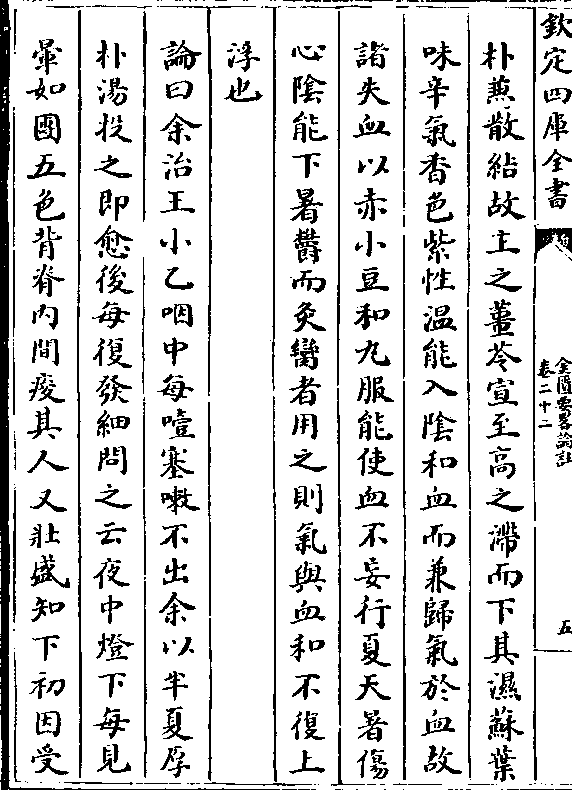 欽定四庫全書
金匱要畧論註
卷二十二
五
朴蕪散結故主之薑苓宣至高之滯而下其濕蘇葉
味辛氣香色紫性温能入陰和血而兼歸氣於血故
諸失血以赤小豆和丸服能使血不妄行夏天暑傷
心陰能下暑欝而灸臠者用之則氣與血和不復上
浮也
論曰余治王小乙咽中每噎塞嗽不出余以半夏厚
朴湯投之即愈後每復發細問之云夜中燈下每見
暈如團五色背脊内間痠其人又壯盛知下初因受